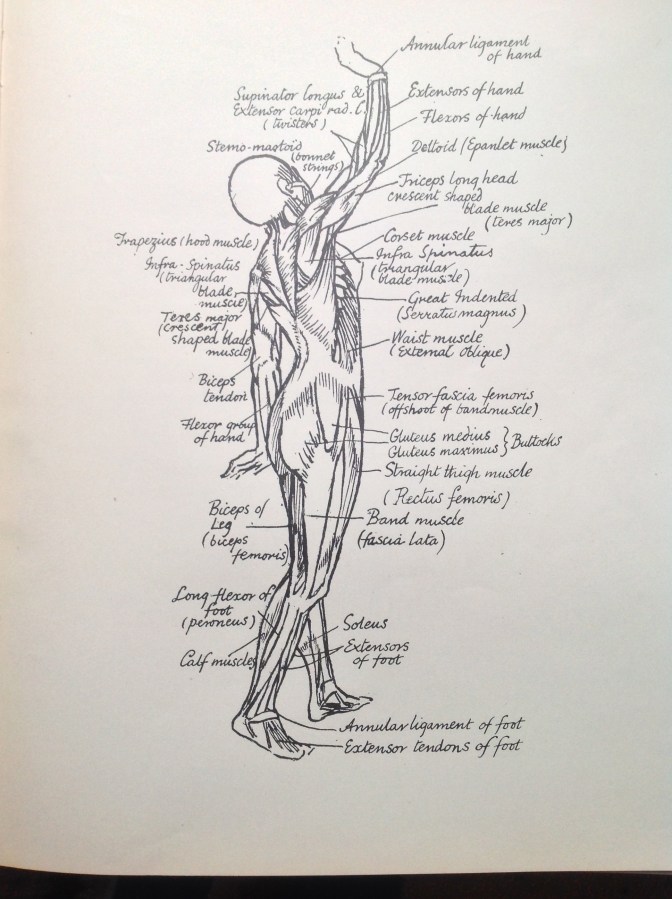 Annular ligament
of hand
Supinator longus &
Extensor carpi rad. L.
(twisters)
Extensors of hand
Flexors of hand
Sterno-mastoid
(bonnet
strings)
Deltoid (Epanlet muscle)
Triceps long head
crescent shaped
blade muscle
(teres major)
Trapezius (hood muscle)
Corset muscle
Infra Spinatus
(triangular
blade muscle)
Infra-Spinatus
(triangular
blade
muscle)
Great Indented
(Serratus magnus)
Teres major
(crescent
shaped blade
muscle)
Waist muscle
(External oblique)
Biceps
tendon
Tensor fascia femoris
(offshoot of bandmuscle)
Flexor group
of hand
Gluteus medius
Gluteus maximus } Buttocks
Straight thigh muscle
(Rectus femoris)
Biceps of
Leg
(biceps
femoris)
Band muscle
(fascia lata)
Long flexor of
foot
(peroneus)
Soleus
Extensors
of foot
Calf muscles
Annular ligament of foot
Extensor tendons of foot